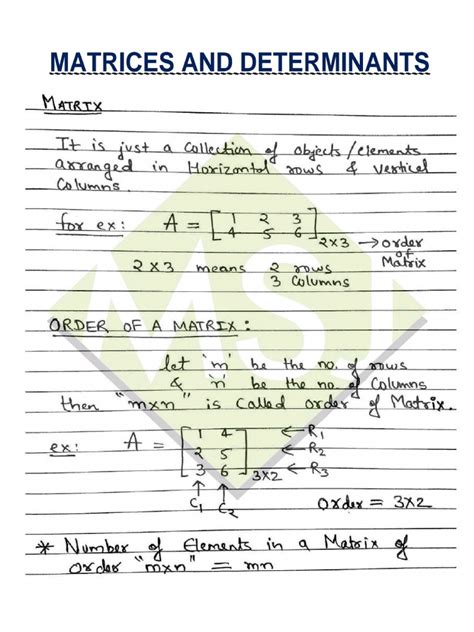 MATRICES AND DETERMINANTS
MATRIX
It is just a collection of objects/elements
arranged in Horizontal rows & vertical
Columns.
for ex: A = [ 1 2 3
4 5 6 ] 2x3 → order
of
Matrix
2x3 means 2 rows
3 Columns
ORDER OF A MATRIX:
let 'm' be the no. of rows
& 'n' be the no. of Columns
then "mxn" is Called order of Matrix.
ex: A = [ 1 4 ← R1
2 5 ← R2
3 6 ] 3x2 ← R3
↑ ↑
C1 C2 Order = 3x2
* Number of Elements in a Matrix of
order "mxn" = mn
MSJ